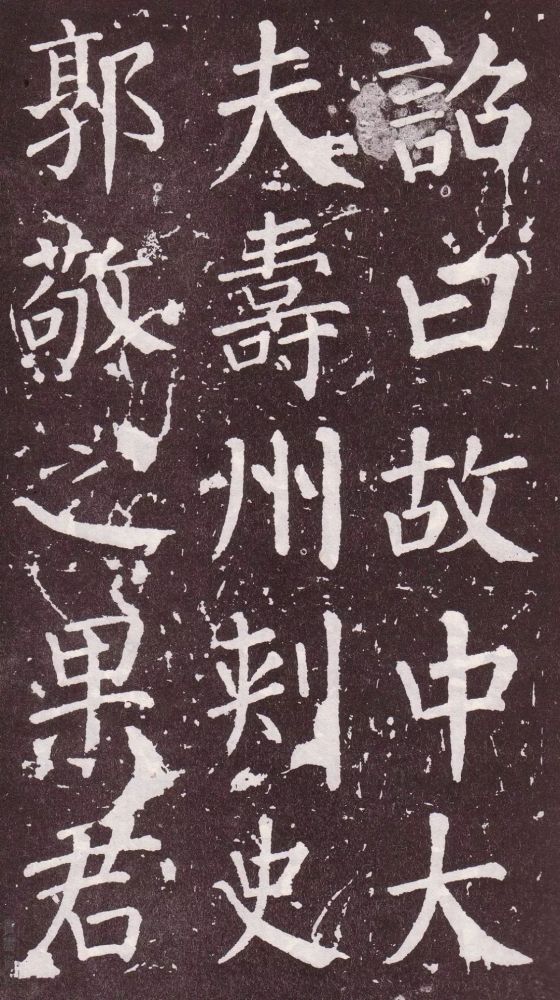 詔曰故中大
夫壽州刺史
郭敬之果君